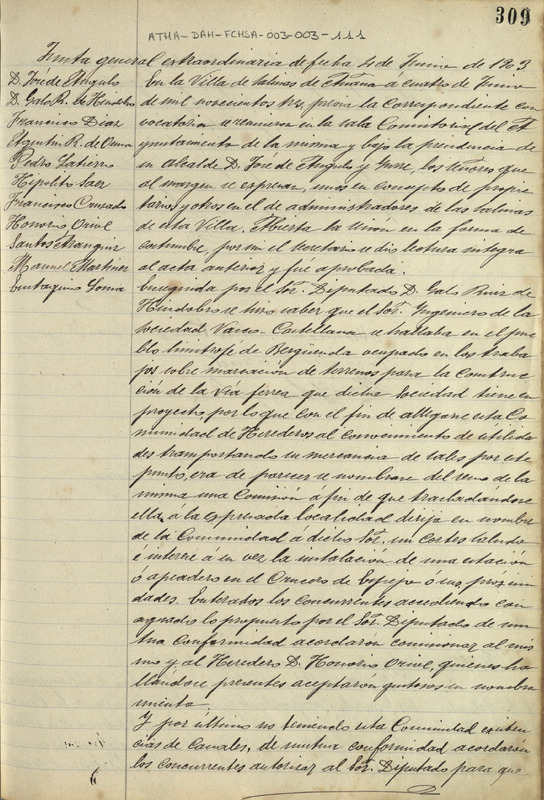 309
ATHA-DAH-FCHSA-003-003-111
Junta general extraordinaria de fecha 4 de Junio de 1903
D. José de Angulo
D. Galo R. de Hindobro
Francisco Diaz
Agustin R. de Ocenda
Pedro
Hipolito Saez
Francisco Cerezado
Honorio Oribe
Santos Aranguiz
Manuel Martinez
Eustaquio Loma
En la Villa de Salinas de Añana á cuatro de Junio
de mil novecientos tres, previa la correspondiente con
vocatoria se reunieron en la sala Consistorial del A
yuntamiento de la misma y bajo la presidencia de
su alcalde D. José de Angulo y los Señores que
al margen se expresan, unos en concepto de propie
tarios y otros en el de administradores de las salinas
de esta Villa. Abierta la sesion en la forma de
costumbre, por mí el Secretario se dio lectura integra
al acta anterior y fué aprobada.
Enseguida por el Sor. Diputado D. Galo Ruiz de
Hindobro se hizo saber que el Sor. Ingeniero de la
sociedad Vasco Castellana se hallaba en el pue
blo limitrofe de Bergüenda ocupado en los traba
jos sobre marcacion de terrenos para la construc
ción de la vía ferrea que dicha sociedad tiene en
proyecto, por lo que con el fin de allegarse esta Co
munidad de Herederos al conocimiento de utilida
des transportando su mercancia de sales por este
punto, era de parecer se nombrase del seno de la
misma una Comisión a fin de que trasladandose
ella, á la expresada localidad dirija en nombre
de la Comunidad a dicho Sor. un cortes saludo
é interese á su vez la instalación de una estación
ó apeadero en el Crucero de Espejo o sus proximi
dades. Enterados los concurrentes accediendo con
agrado lo propuesto por el Sor. Diputado de mu
tua conformidad acordaron comisionar al mis
mo y al Heredero D. Honorio Oribe, quienes ha
llandose presentes aceptaron gustosos su nombra
miento.
Y por último no teniendo esta Comunidad existen
cias de Canales, de mutua conformidad acordaron
los concurrentes autorizar al Sor. Diputado para que